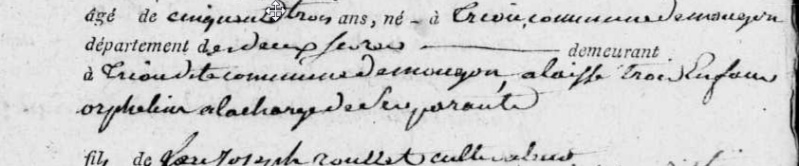 âgé de cinquante trois ans, né à Triou, commune de mougon
département des deux sevres demeurant
à Triou dite commune de mougon, a laissé trois Enfans
orphelins a la charge de Ses parents
fils de Joseph rousset cultivateur